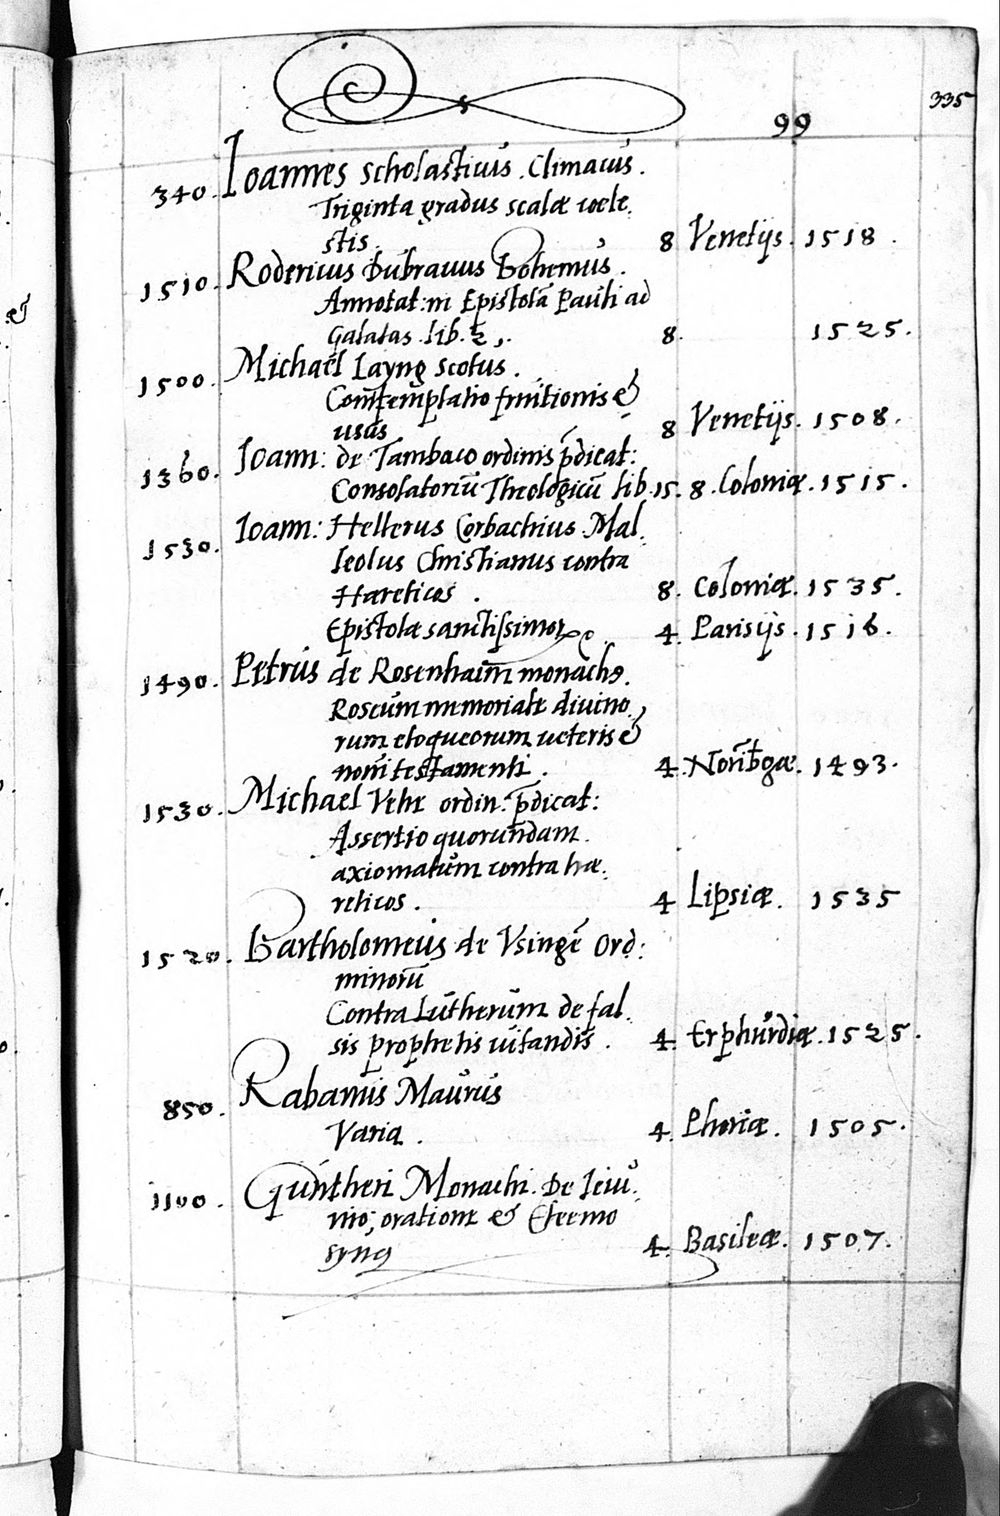 335
99
340. Ioannes scholasticus. Climacus.
Triginta gradus scalæ cœle,
stis. 8 Venetijs. 1518.
1510. Rodericus Dubrauus Bohemus.
Annotat: in Epistolã Pauli ad
Galatas. lib. 8. 1525.
1500. Michaël Layng scotus.
Contemplatio fruitionis &
usus 8 Venetijs. 1508.
1360. Ioann: de Tambaco ordinis p̃dicat:
Consolatoriũ Theologicũ lib. 15. 8. Coloniæ. 1515.
1530. Ioann: Hellerus Corbachius. Mal,
leolus Christianus contra
Hæreticos. 8. Coloniæ. 1535.
Epistolæ 4. Parisijs. 1516.
1490. Petrus de Rosenhaim monach9.
Roseum memoriale diuino,
rum eloqueorum ueteris &
noui testamenti. 4. Norib̃gæ. 1493.
1530. Michael Vehe ordin: p̃dicat:
Assertio quorundam
axiomatum contra hæ,
reticos. 4 Lipsiæ. 1535
1520. Bartholomeus de Vsingẽ Ord:
minorũ
Contra Lutherum de fal,
sis prophetis uitandis. 4. Erphurdiæ. 1525.
850. Rabanus Maurus
Varia. 4. Phoriæ. 1505.
1100. Guntheri Monachi. De Ieiu,
nio, oratione & Eleemo
syna 4. Basileæ. 1507.